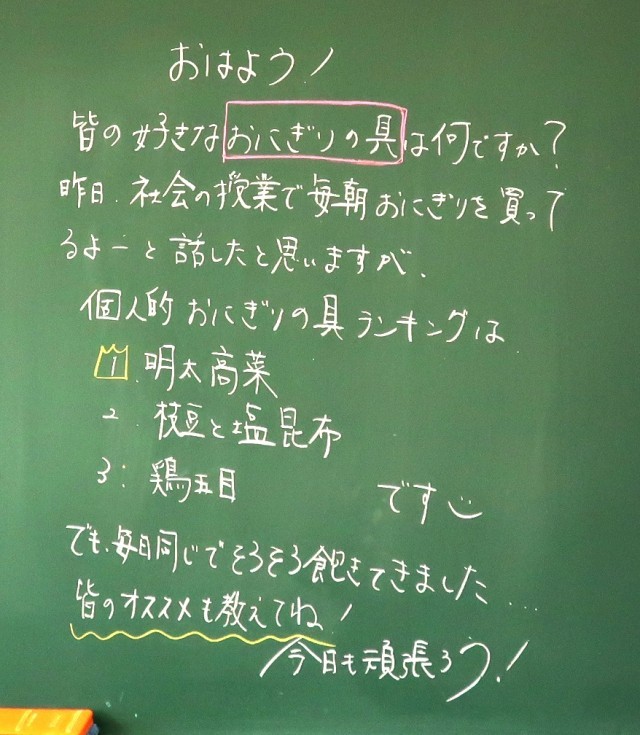 おはよう!
皆の好きなおにぎりの具は何ですか?
昨日、社会の授業で毎朝おにぎりを買って
るよーと話したと思いますが、
個人的おにぎりの具ランキングは
1. 明太高菜
2. 枝豆と塩昆布
3. 鶏五目 です
でも、毎日同じでそろそろ飽きてきました....
皆のオススメも教えてね!
今日も頑張ろう!